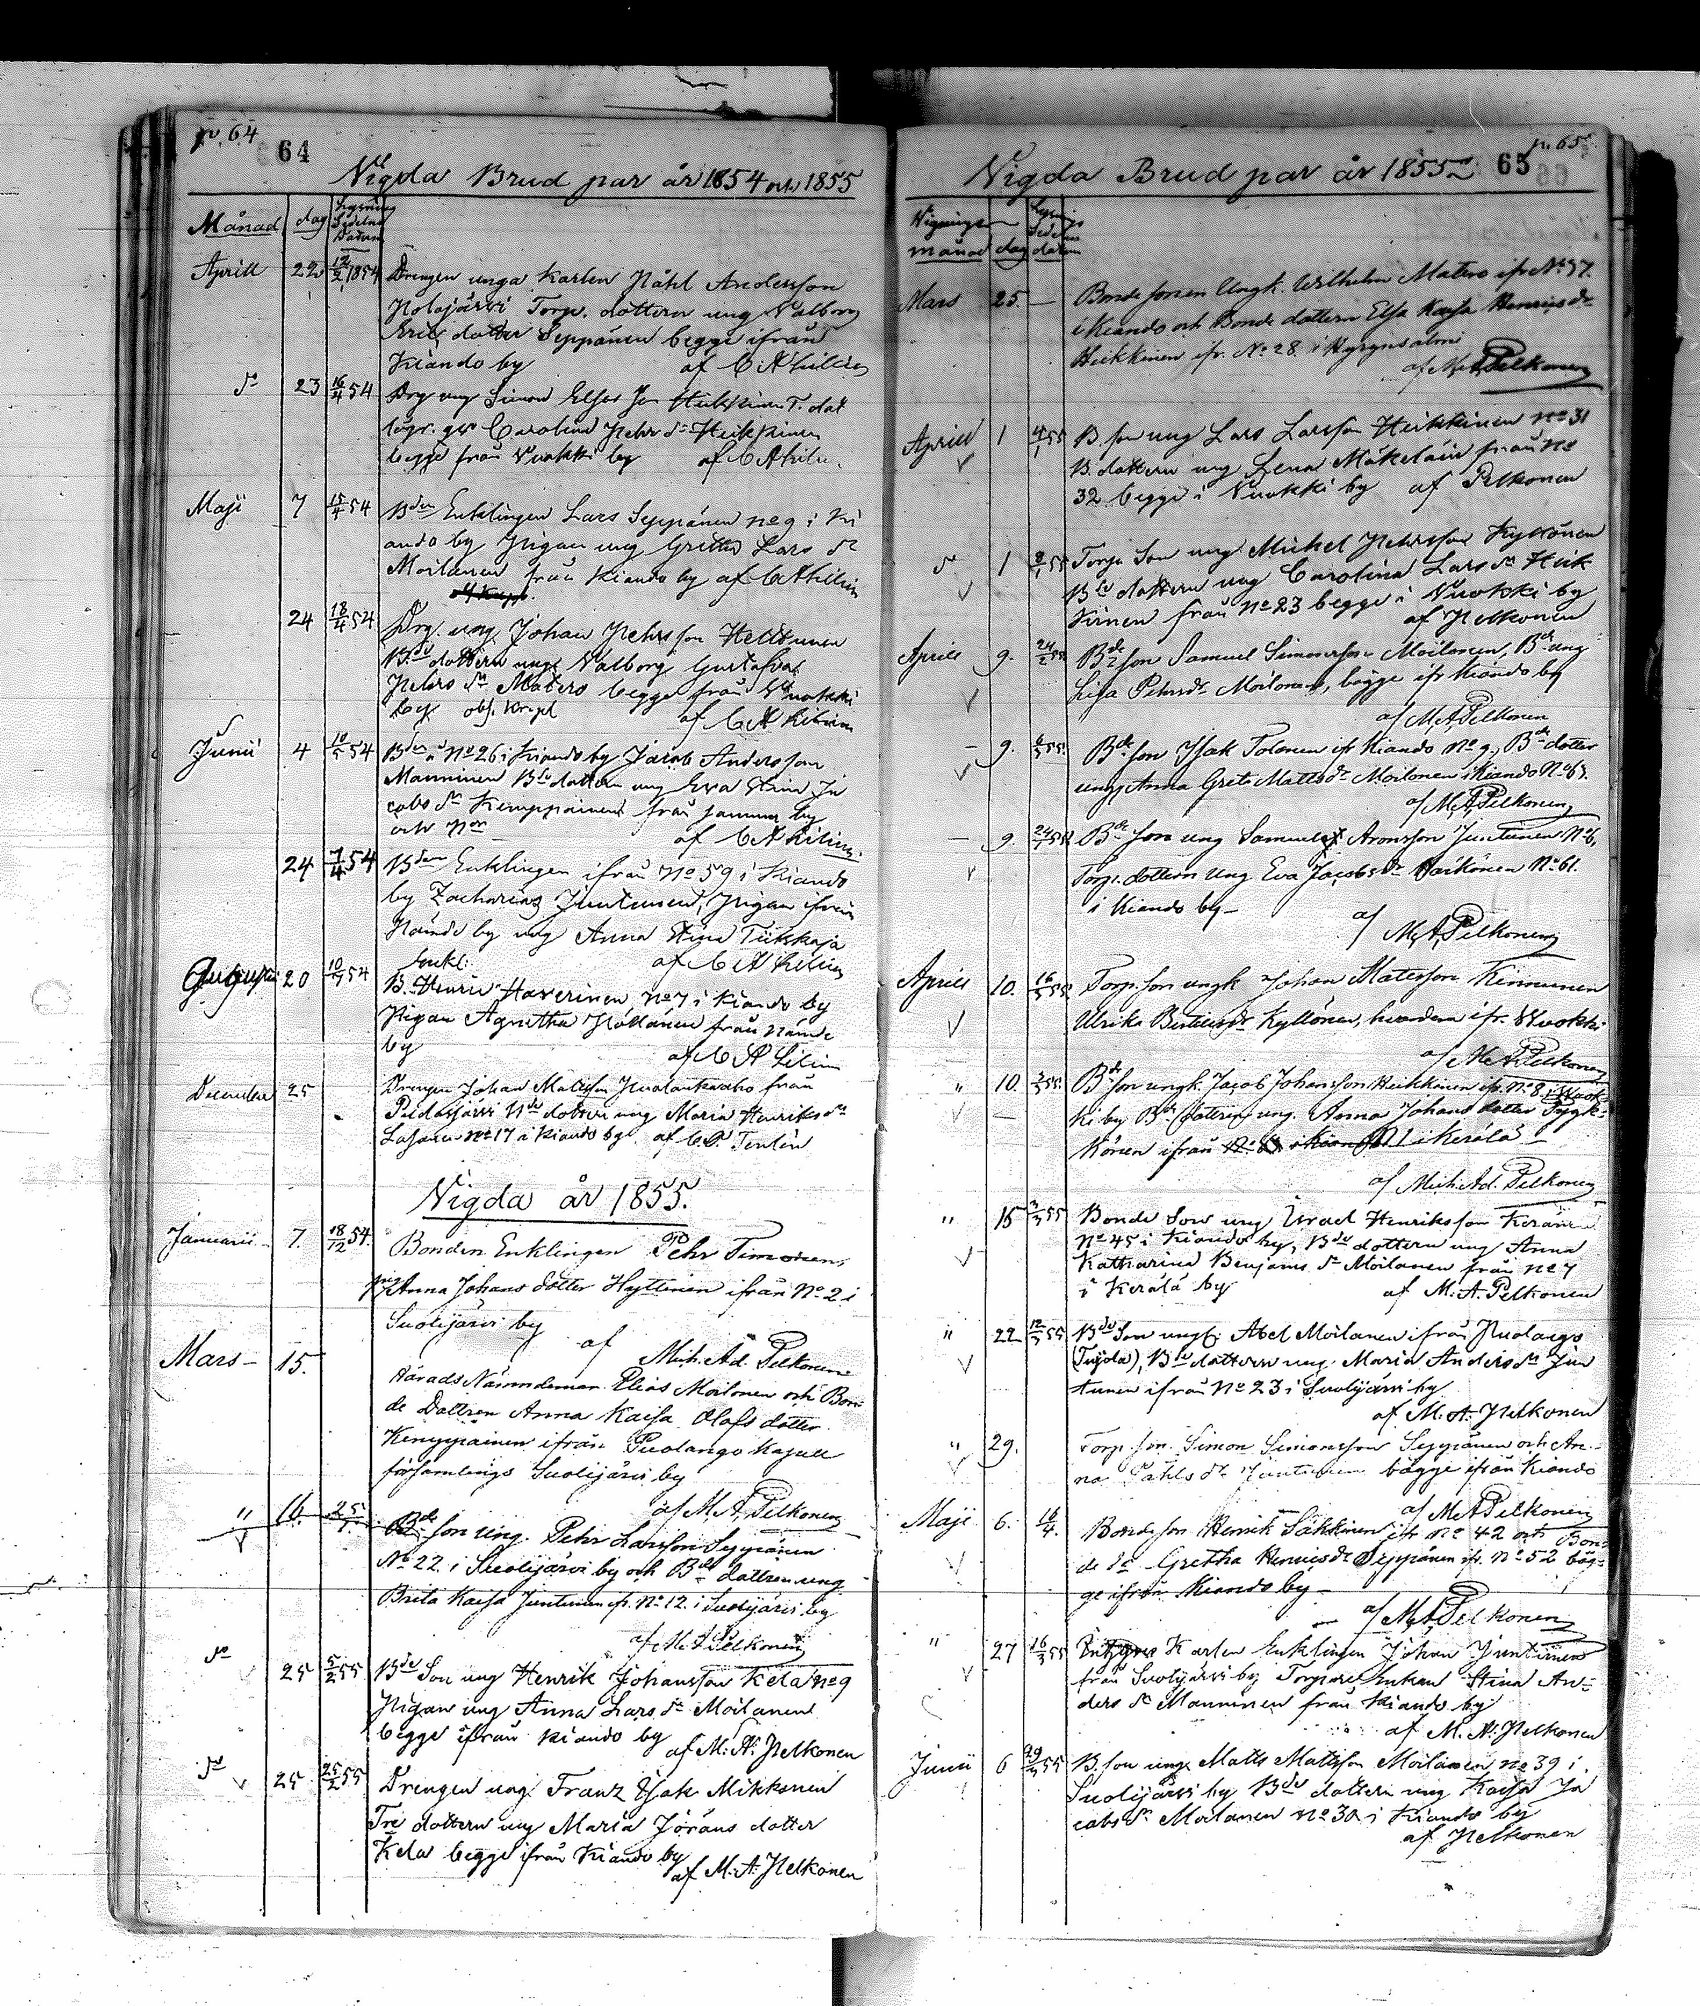 p. 64
64
Vigda Brud par år 1854 och 1855
Månad dag Lysnings Sedelns Datum
Aprill 22 12/2 1854 Drengen unga Karlen Påhl Andersson
Torp. dottern ung Valborg
Eriks dotter Seppänen begge ifrån
Kiando by af C A Lilius
do 23 16/4 54 Drg ung Simon
Carolina Pehrs dr Heikkinen
begge från Vuokki by af C A Lilius.
Maji 7 15/4 54 Bden Enklingen Lars Seppänen no 9 i Ki
ando by Pigan ung Gretha Lars dr
Moilanen från Kiando by af C A Lilius
24 18/4 54 Drg. ung Johan Pehrsson Heikkinen
Bde dottern unga Valborg Gustafva
Pehrs dr Matero begge från Vuokki
by af C A Lilius
Junii 4 54 Bden å No 26 i Kiando by Jacob Andersson
Manninen Bde dottern ung Eva Stina Ja
cobs dr Kemppainen från samma by
och Nor af C A Lilius.
24 7/4 54 Bden Enklingen ifrån No 59 i Kiando
by Zacharias Juntunen, Pigan ifrån
Nämde by ung Anna Stina Tiikkaja
af C A Lilius
Augusti 20 54 B. Henric Haverinen No 7 i Kiando by
Pigan Agnetha från Nämde
by af C A Lilius
December 25 Drengen Johan Matsson från
Pudasjärvi Bde dottern ung Maria Henriks dr
no 17 å Kiando by
Vigda år 1855.
Januarii 7. 18/12 54. Bonden Enklingen Pehr Timonen,
pig Anna Johans dotter Hyttinen ifrån No 2 i
Suolijärvi by
af Mich. Ad. Pelkonen
Mars 15. Härads Nämndeman Elias Moilonen och Bon
de Dottren Anna Kaisa Olofs dotter
Kemppainen ifrån Puolango kapell
församlings Suolijärvi by
af M. A. Pelkonen
" 16. Bde son ung. Pehr Larsson Seppänen
No 22. i Suolijärvi by och Bde dottren ung
Brita Kaisa Juntunen ifr. No 12. i Suolijärvi by
af M. A. Pelkonen
do 25 5/2 55 Bde Son ung Henrik Johansson Kela no 9
Pigan ung Anna Lars dr Moilanen
begge ifrån Kiando by
af M. A. Pelkonen
do 25 25/2 55 Drengen ung Franz Isak Mikkonen
dottern ung Maria Jörans dotter
Kela begge ifrån Kiando by
af M. A. Pelkonen
p. 65
65
Vigda Brud par år 1855
Vignings månad dag Lysnings Sedelns datum
Mars 25. — Bonde sonen Ungk. Wilhelm Matero ifr No 37.
i Kiando och Bonde dottern Elsa Kaisa Henrics dr
Heikkinen ifr. No 28 i Hyrynsalmi
af M. A. Pelkonen
Aprill 1 55 B. son ung Lars Larsson Heikkinen no 31
B. dottern ung Lena Mäkeläin från no
32 begge i Vuokki by af Pelkonen
do 1 55 Torp. Son ung Mickel Pehrsson Kyllönen
Bde dottern ung Carolina Lars dr Heik
kinen från no 23 begge i Vuokki by
af Pelkonen
Aprill 9. 24/2 55 Bde son Samuel Simonsson Moilonen, Bde ung
Lisa Pehrs dr Moilonen, begge ifr Kiando by
af M. A. Pelkonen
— 9. 55. Bde son Isak Tolonen ifr Kiando No 9, Bde dotter
ung Anna Greta Matts dr Moilonen i Kiando No 63.
af M. A. Pelkonen
— 9. 55 Bde son ung Samuel Aronsson Juntunen No 6,
Torp. dottern Ung Eva Jacobs dr No 61.
i Kiando by—
af M. A. Pelkonen
Aprill 10. 55 Torp. son ungk Johan Matesson Kinnunen
Ulrika Kyllönen, hvardera ifr. Wuokki
af M. A. Pelkonen
" 10. 55. Bde son ungk. Jacob Johansson Heikkinen ifr. No 8 i Wuok-
ki by Bde dottren ung. Anna Johans dotter Pyyk-
könen ifrån i Kerälä—
af Mich. Ad. Pelkonen
" 15 55 Bonde Son ung Israel Henriksson Keränen
No 45 i Kiando by, Bde dottern ung Anna
Katharina Benjams dr Moilanen från no 7
i Kerälä by af M. A. Pelkonen
" 22 12/3 55 Bde Son ungk. Abel Moilanen ifrån Puolango
Bde dottern ung. Maria Anders dr Jun
tunen ifrån No 23 i Suolijärvi by
af M. A. Pelkonen
" 29. Torp. son. Simon Simonsson Seppänen och An-
na Påhls dr Juntunen bägge ifrån Kiando
af M. A. Pelkonen
Maji 6. Bonde son Henrik Säkkinen ifr No 42 och Bon-
de dr Gretha Henrics dr Seppänen ifr. No 52 bäg-
ge ifrån Kiando by—
af M. A. Pelkonen
" 27 16/3 55 Karlen Enklingen Johan Juntunen
från Suolijärvi by Torpare Enkan Stina An-
ders dr Manninen från Kiando by
af M. A. Pelkonen
Junii 6 55 B. son ung Matts Matsson Moilanen no 39 i.
Suolijärvi by Bde dottern ung Kaisa Ja
cobs dr Moilanen No 30 i Kiando by
af Pelkonen